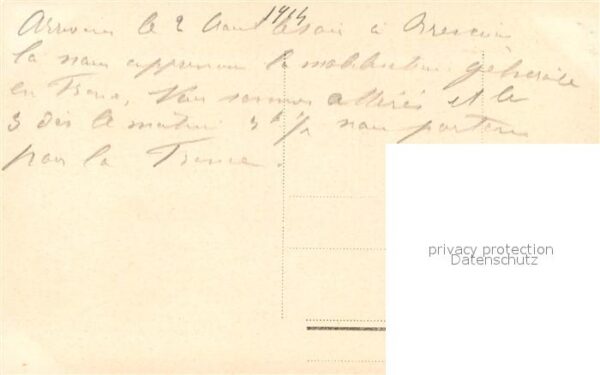 1914
Arrivons le 2 Aout le soir à
là nous apprenons la mobilisation générale
en France, Nous sommes atterrés et le
3 dès le matin 3h½ nous partons
pour la France.
privacy protection
Datenschutz